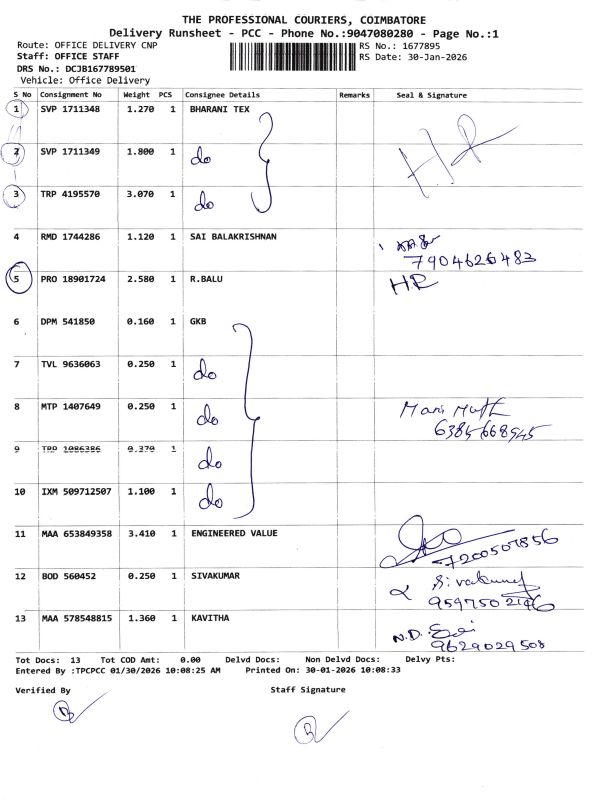 THE PROFESSIONAL COURIERS, COIMBATORE
Delivery Runsheet - PCC - Phone No.:9047080280 - Page No.:1
Route: OFFICE DELIVERY CNP RS No.: 1677895
Staff: OFFICE STAFF RS Date: 30-Jan-2026
DRS No.: DCJB167789501
Vehicle: Office Delivery
S No Consignment No Weight PCS Consignee Details Remarks Seal & Signature
1 SVP 1711348 1.270 1 BHARANI TEX
2 SVP 1711349 1.800 1 do
3 TRP 4195570 3.070 1 do
4 RMD 1744286 1.120 1 SAI BALAKRISHNAN
7904626483
5 PRO 18901724 2.580 1 R.BALU HR
6 DPM 541850 0.160 1 GKB
7 TVL 9636063 0.250 1 do
8 MTP 1407649 0.250 1 do
6384668945
9 TRP 1086386 0.370 1 do
10 IXM 509712507 1.100 1 do
11 MAA 653849358 3.410 1 ENGINEERED VALUE
7200507856
12 BOD 560452 0.250 1 SIVAKUMAR
13 MAA 578548815 1.360 1 KAVITHA N.D.
9629029508
Tot Docs: 13 Tot COD Amt: 0.00 Delvd Docs: Non Delvd Docs: Delvy Pts:
Entered By :TPCPCC 01/30/2026 10:08:25 AM Printed On: 30-01-2026 10:08:33
Verified By Staff Signature